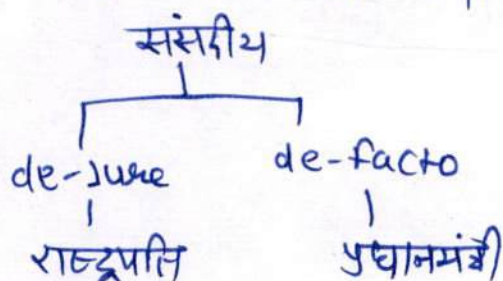 संसदीय
de-jure de-facto
राष्ट्रपति प्रधानमंत्री